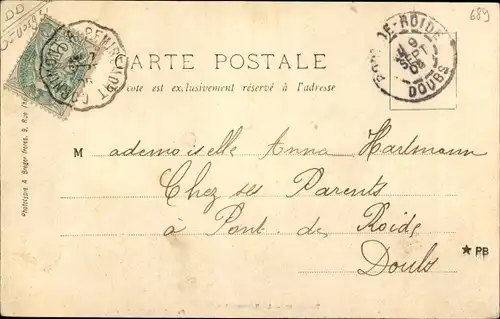 689
DE-ROIDE
9
SEPT
03
DOUBS
CARTE POSTALE
Ce cote est exclusivement réservé à l'adresse
Mademoiselle Anna Hartmann
Chez ses Parents
à Pont de Roide
Doubs
★ PB
Phototypie A. Breger frères, 9, Rue